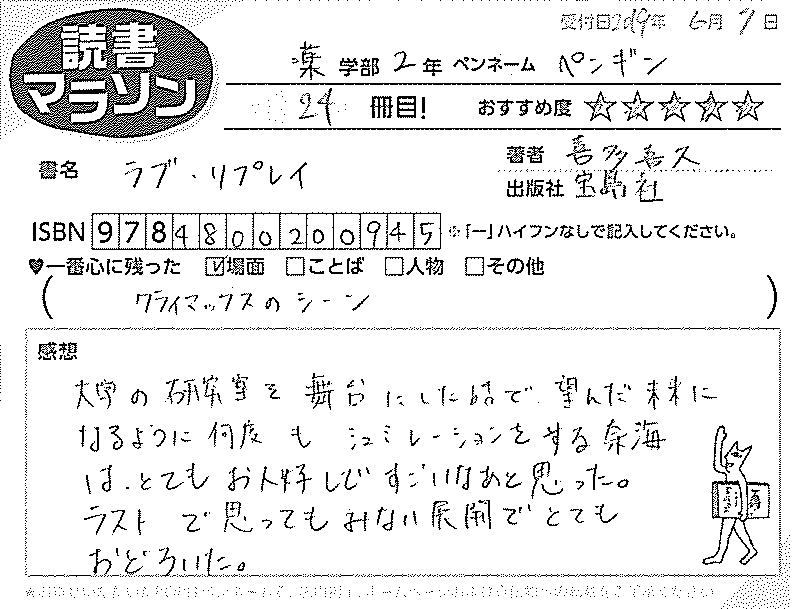 受付日2019年 6月 7日
読書
マラソン
薬 学部 2 年 ペンネーム ペンギン
24 冊目! おすすめ度 ☆☆☆☆☆
書名 ラブ・リプレイ
著者 喜多喜久
出版社 宝島社
ISBN 9784800200945 ※「ー」ハイフンなしで記入してください。
♥一番心に残った ☑場面 □ことば □人物 □その他
( クライマックスのシーン )
感想
大学の研究室を舞台にした話で、望んだ未来に
なるように何度も シュミレーションをする奈海
は、とてもお人好しですごいなあと思った。
ラストで思ってもみない展開でとても
おどろいた。